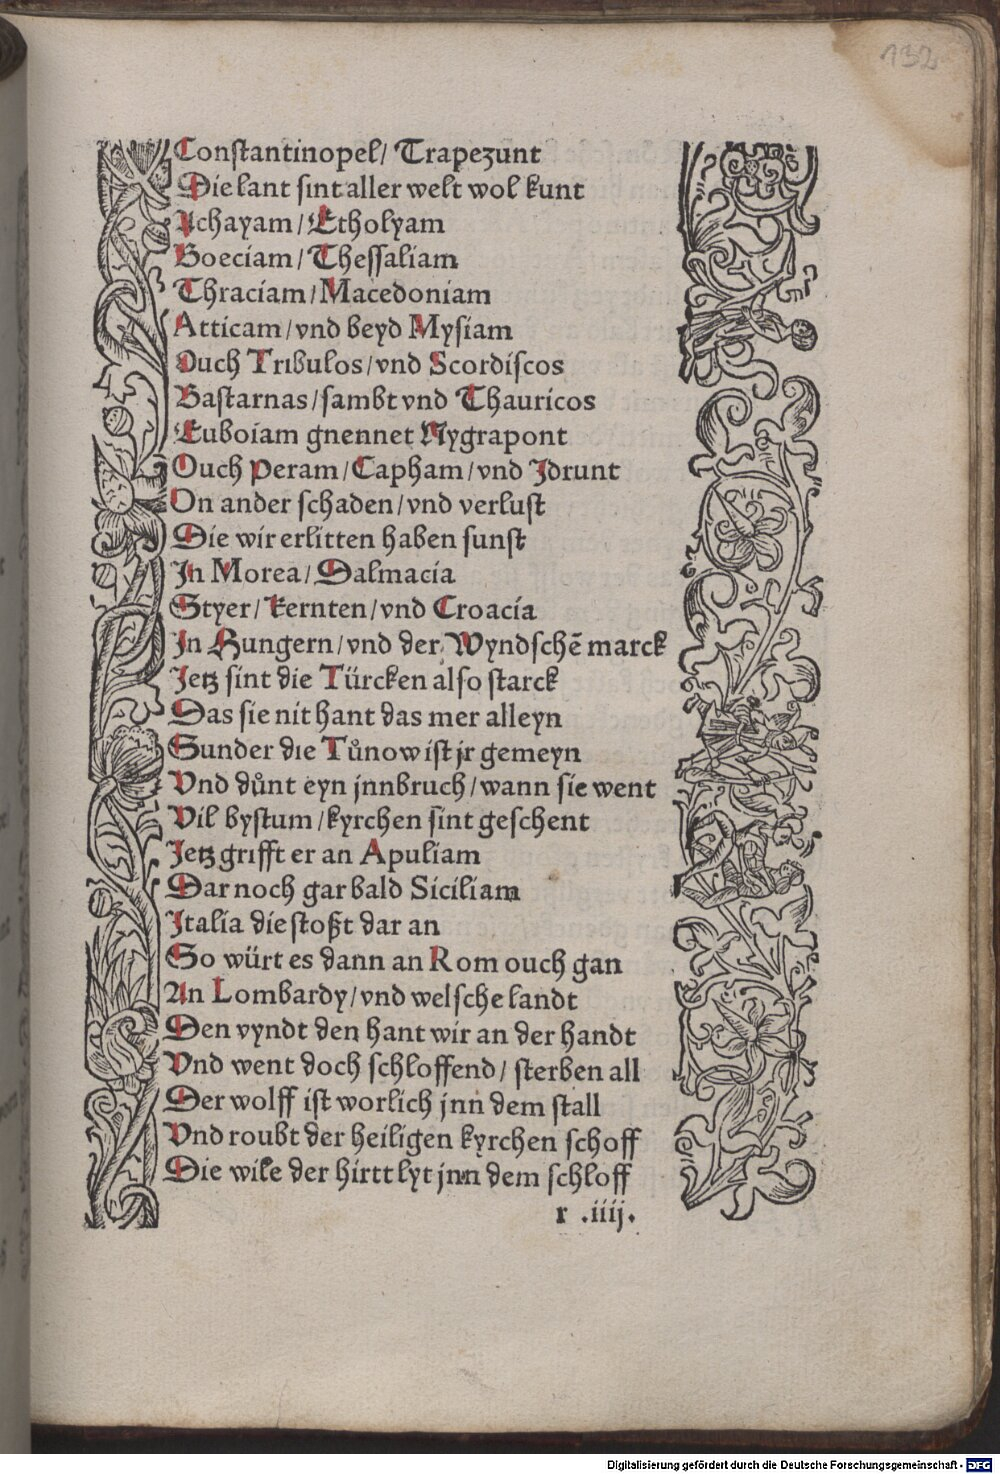 132
Constantinopel/ Trapezunt
Die lant sint aller welt wol kunt
Achayam/Etholyam
Boeciam/Thessaliam
Thraciam/Macedoniam
Atticam/vnd beyd Mysiam
Ouch Tribulos/vnd Scordiscos
Bastarnas/sambt vnd Thauricos
Euboiam gnennet Nygrapont
Ouch Peram/Capham/vnd Jdrunt
On ander schaden/vnd verlust
Die wir erlitten haben sunst
Jn Morea/Dalmacia
Styer/kernten/vnd Croacia
Jn Hungern/vnd der Wyndschẽ marck
Jetz sint die Türcken also starck
Das sie nit hant das mer alleyn
Sunder die Tůnow ist jr gemeyn
Vnd důnt eyn jnnbruch/wann sie went
Vil bystum/kyrchen sint geschent
Jetz grifft er an Apuliam
Dar noch gar bald Siciliam
Jtalia die stoßt dar an
So würt es dann an Rom ouch gan
An Lombardy/vnd welsche landt
Den vyndt den hant wir an der handt
Vnd went doch schloffend/ sterben all
Der wolff ist worlich jnn dem stall
Vnd roubt der heiligen kyrchen schoff
Die wile der hirtt lyt jnn dem schloff
r .iiij.
Digitalisierung gefördert durch die Deutsche Forschungsgemeinschaft - DFG